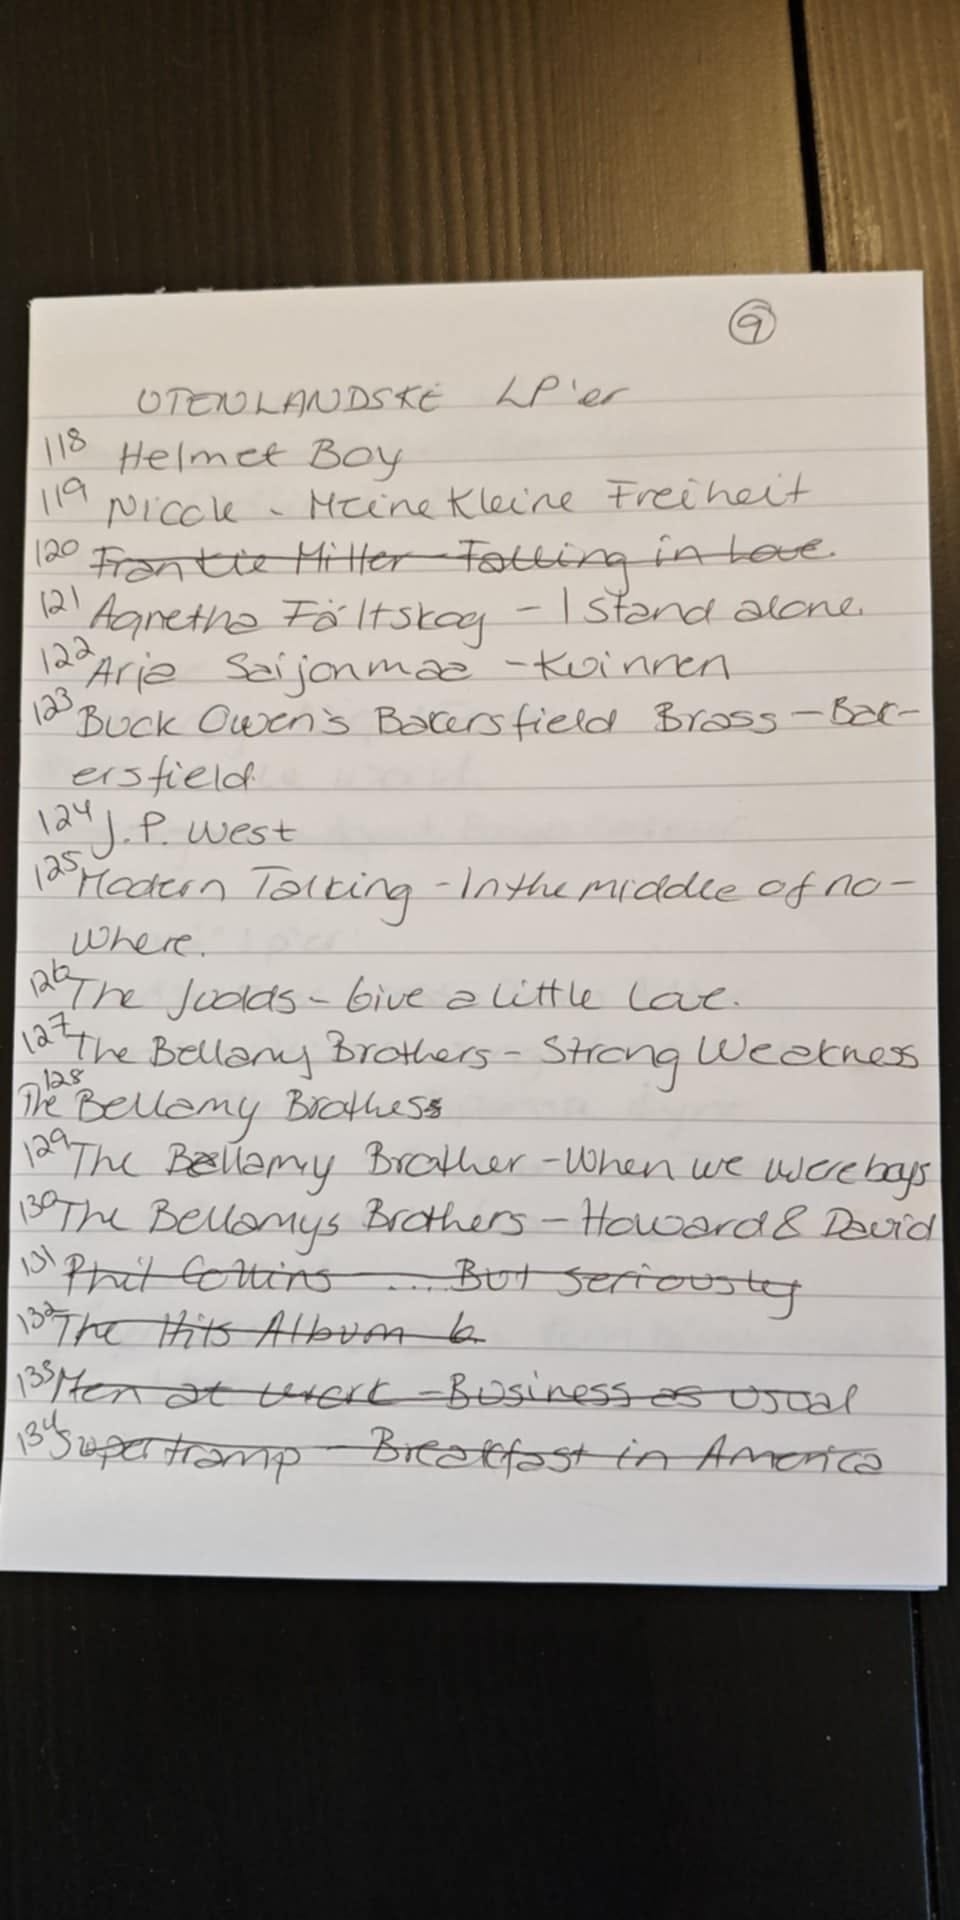 9
UTENLANDSKE LP'er
118 Helmet Boy
119 Nicole - Meine Kleine Freiheit
120 Frankie Miller - Falling in Love.
121 Agnetha Fältskog - I stand alone.
122 Arja Saijonmaa - Kvinnen
123 Buck Owen's Bakersfield Brass - Bak-
ersfield
124 J.P. West
125 Modern Talking - In the middle of no-
where.
126 The Judds - Give a little love.
127 The Bellamy Brothers - Strong Weakness
128
The Bellamy Brothess
129 The Bellamy Brother - When we were boys
130 The Bellamys Brothers - Howard & David
131 Phil Collins ... But seriously
132 The Hits Album 6
133 Men at work - Business as usual
134 Supertramp - Breakfast in America